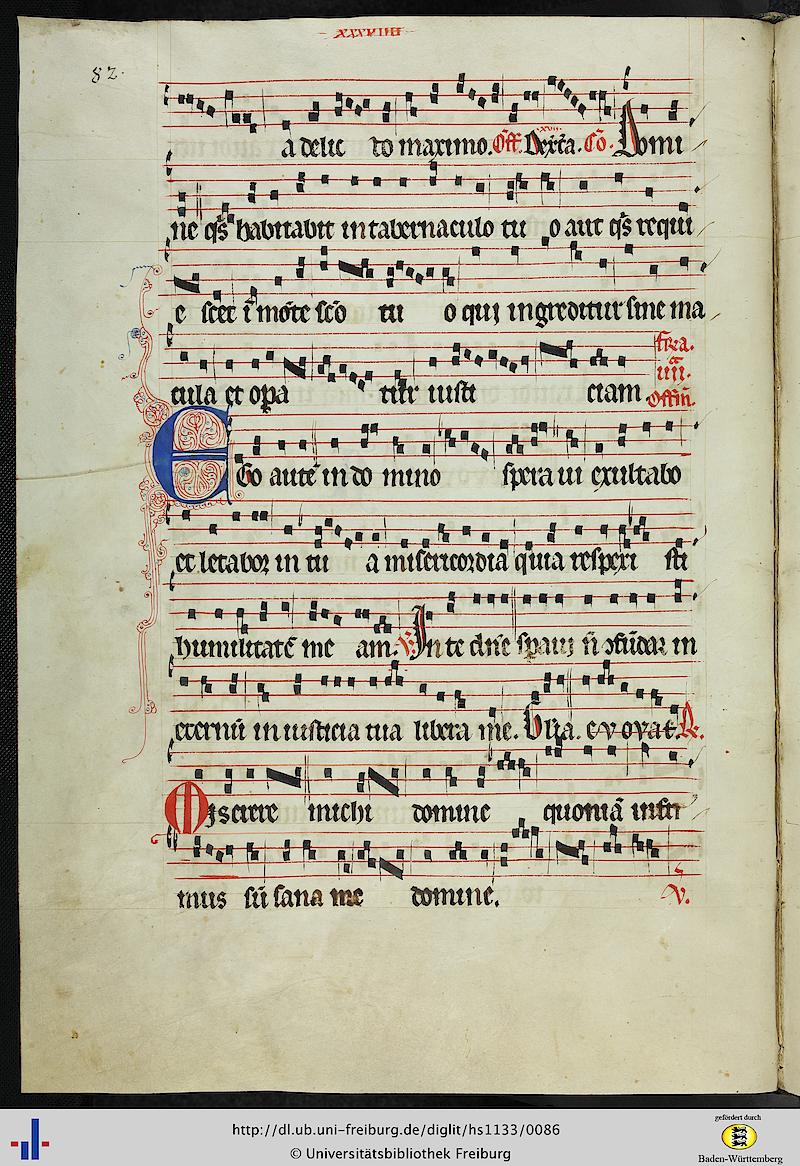 xxxviiii
82.
a delic to maximo. Off. Dext̄a. Cō. Domi
ne qͥs habitabit in tabernaculo tu o aut qͥs requi
e scet ī mōte scō tu o qui ingreditur sine ma
cula et opa tur iusti ciam
fr̄ia. iiii. Offm̄.
Ego autē in do mino spera ui exultabo
et letabor in tu a misericordia quia respexi sti
humilitatē me am. In te dn̄e spaui n̄ ↄfūdar in
eternū in iusticia tua libera me. Gl̄ia. evovae. R.
Miserere michi domine quoniā infir
mus sū sana me domine. V.
http://dl.ub.uni-freiburg.de/diglit/hs1133/0086
© Universitätsbibliothek Freiburg
gefördert durch
Baden-Württemberg